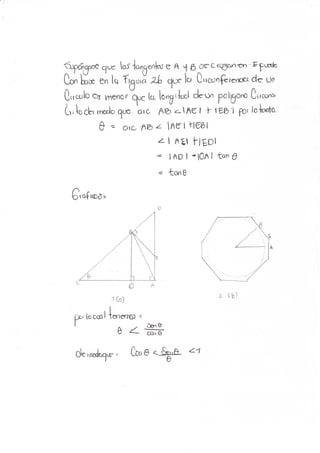 Supóngase que las tangentes e A y B
Con base en la Figura 2b que la Circunferencia de un
Circulo es menor que la longitud de un poligono Circuns-
de modo que arc AB < |AE| + |EB| por lo tanto
θ = arc AB < |AE| + |EB|
< |AE| + |ED|
= |AD| = |OA| tan θ
= tan θ
Graficas
D
B
E
O
C
A
θ
B
A
1 (a)
2 (b)
por lo cual tenemos =
θ < sen θ / cos θ
de modo que = Cos θ < Sen θ / θ < 1